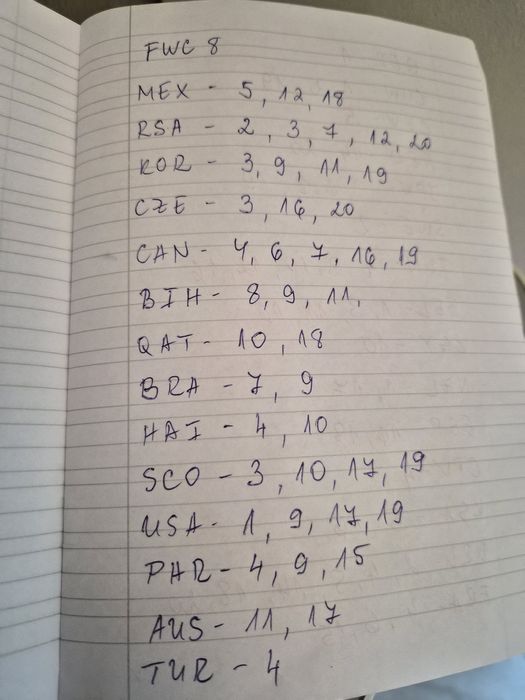 FWC 8
MEX - 5, 12, 18
RSA - 2, 3, 7, 12, 20
KOR - 3, 9, 11, 19
CZE - 3, 16, 20
CAN - 4, 6, 7, 16, 19
BIH - 8, 9, 11,
QAT - 10, 18
BRA - 7, 9
HAI - 4, 10
SCO - 3, 10, 17, 19
USA - 1, 9, 17, 19
PAR - 4, 9, 15
AUS - 11, 17
TUR - 4